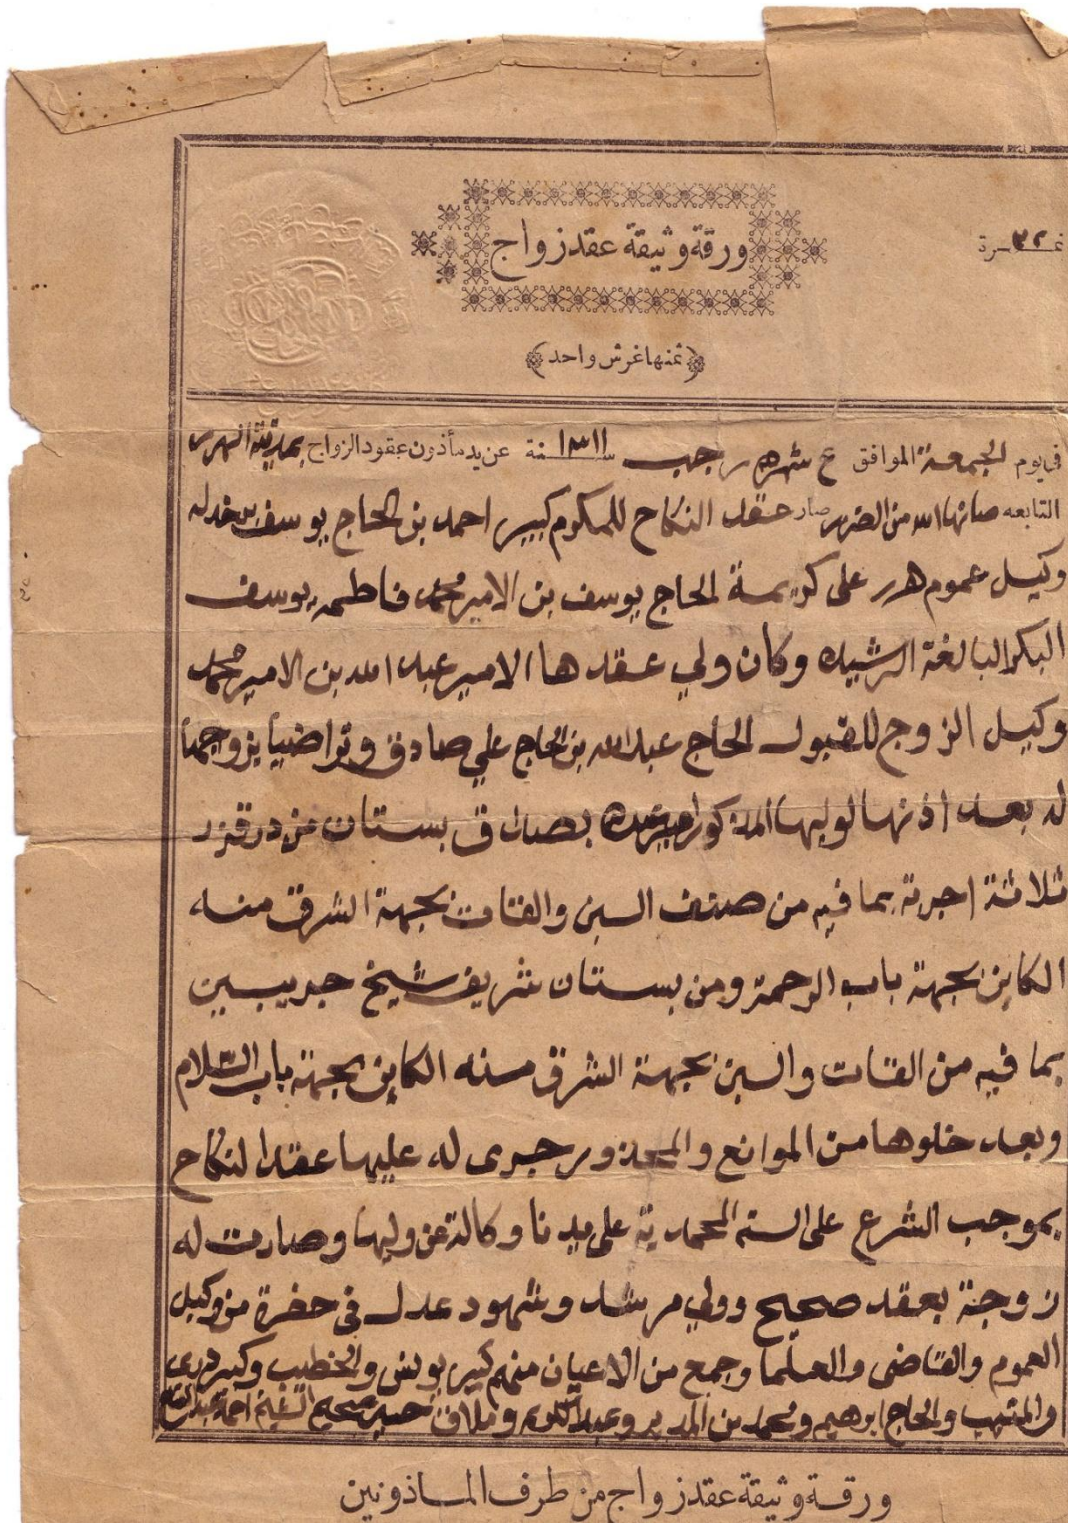 نمـ ٣٢ ـرة
ورقة وثيقة عقد زواج
﴿ثمنها غرش واحد﴾
في يوم الجمعة الموافق ع شهر رجب سنة ١٣١١ عن يد مأذون عقود الزواج بمدينة الهرر
التابعه صانها الله من الضرر صار عقد النكاح للمكرم كبير احمد بن الحاج يوسف بن
وكيل عموم هرر على كريمة الحاج يوسف بن الامير محمد فاطمه يوسف
البكر البالغة الرشيده وكان ولي عقدها الامير عبد الله بن الامير محمد
وكيل الزوج للقبول الحاج عبد الله بن الحاج علي صادق وتراضيا بزوجها
له بعد اذنها لوليها المذكور بصداق بستان من
ثلاثة اجربة بما فيه من صنف البن والقات بجهة الشرق منه
الكاين بجهة باب الرحمة ومن بستان شريف شيخ
بما فيه من القات والبن بجهة الشرق منه الكاين بجهة باب السلام
وبعد خلوها من الموانع والمحذور جرى له عليها عقد النكاح
بموجب الشرع على السنه المحمدية على يدنا وكالة عن وليها وصارت له
زوجة بعقد صحيح وولي مرشد وشهود عدل في حضرة من وكيل
العموم والقاضى والعلما وجمع من الاعيان منهم كبير يونس والخطيب وكبير
والحاج ابرهيم ومحمد بن المدير وعبد وملاق حسين الشيخ احمد
ورقة وثيقة عقد زواج من طرف المـاذونين